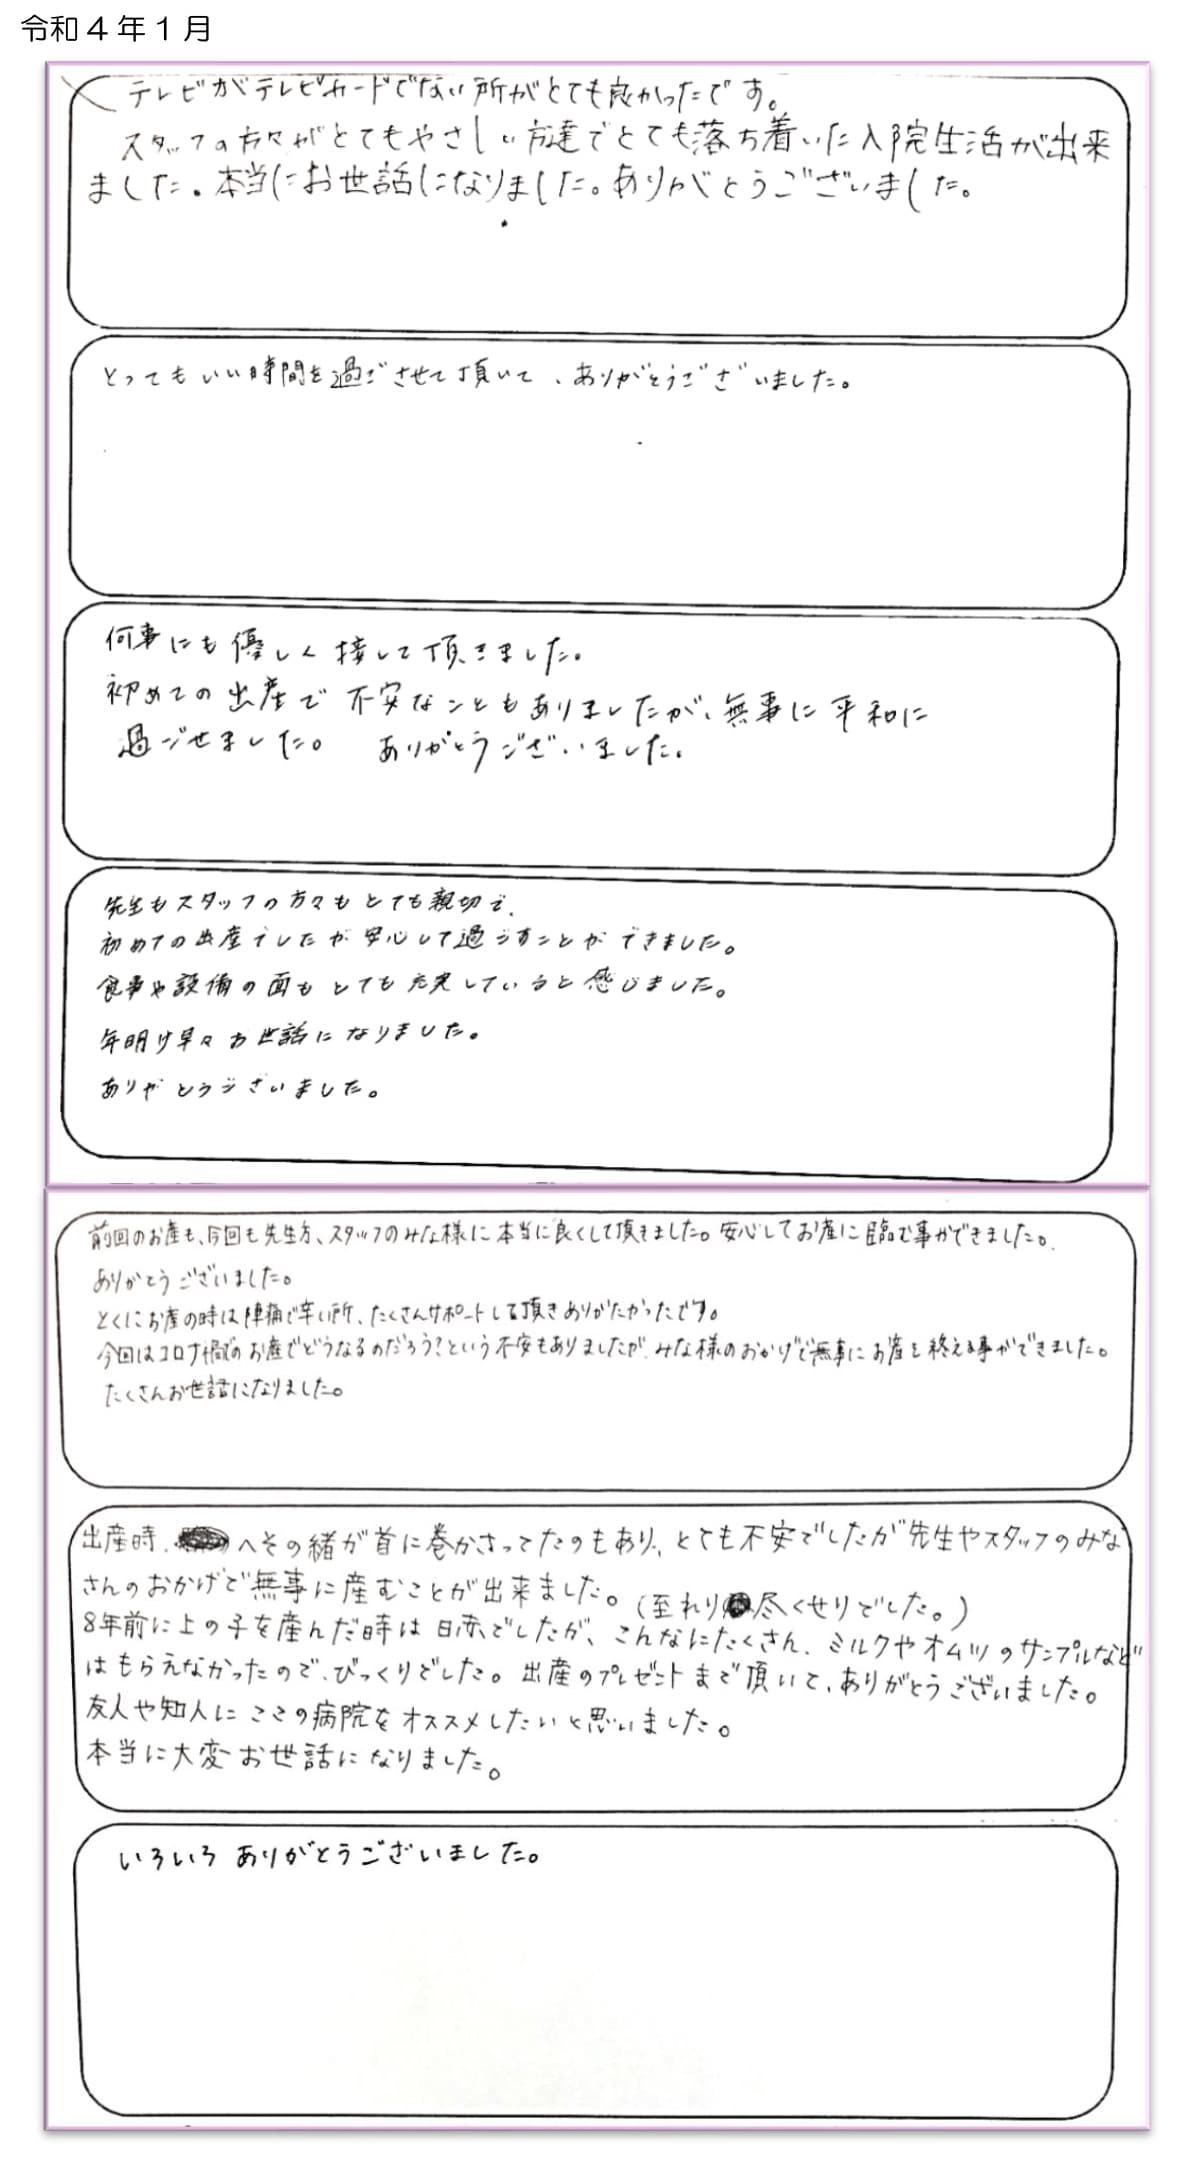 令和４年１月
テレビがテレビカードでない所がとても良かったです。
スタッフの方々がとてもやさしい方達でとても落ち着いた入院生活が出来
ました。本当にお世話になりました。ありがとうございました。
とってもいい時間を過ごさせて頂いて、ありがとうございました。
何事にも優しく接して頂きました。
初めての出産で不安なこともありましたが、無事に平和に
過ごせました。 ありがとうございました。
先生もスタッフの方々もとても親切で、
初めての出産でしたが安心して過ごすことができました。
食事や設備の面もとても充実していると感じました。
年明け早々お世話になりました。
ありがとうございました。
前回のお産も、今回も先生方、スタッフのみな様に本当に良くして頂きました。安心してお産に臨む事ができました。
ありがとうございました。
とくにお産の時は陣痛で辛い所、たくさんサポートして頂きありがたかったです。
今回はコロナ禍でのお産でどうなるのだろう？という不安もありましたが、みな様のおかげで無事にお産を終える事ができました。
たくさんお世話になりました。
出産時、へその緒が首に巻かさってたのもあり、とても不安でしたが先生やスタッフのみな
さんのおかげで無事に産むことが出来ました。(至れり尽くせりでした。)
8年前に上の子を産んだ時は日赤でしたが、こんなにたくさん、ミルクやオムツのサンプルなど
はもらえなかったので、びっくりでした。出産のプレゼントまで頂いて、ありがとうございました。
友人や知人にここの病院をオススメしたいと思いました。
本当に大変お世話になりました。
いろいろありがとうございました。